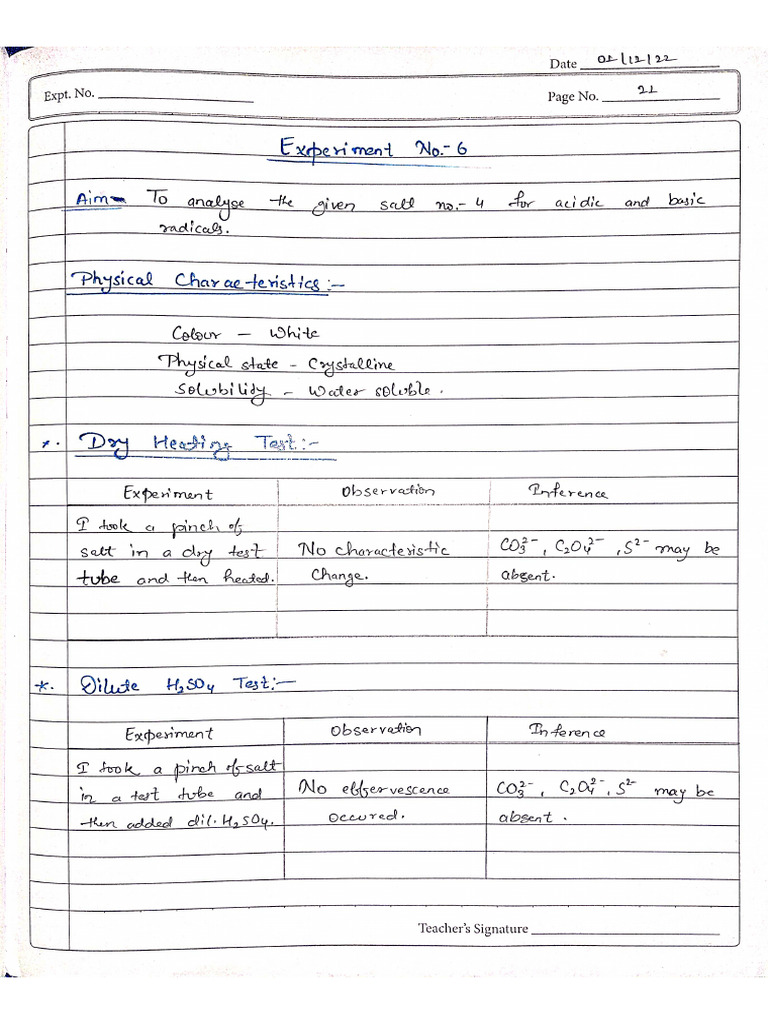 Date 01/12/22
Expt. No.
Page No. 21
Experiment No.- 6
Aim- To analyse the given salt no.- 4 for acidic and basic
radicals.
Physical Characteristics :-
Colour - White
Physical state - Crystalline
Solubility - Water soluble.
*. Dry Heating Test:-
Experiment Observation Inference
I took a pinch of
salt in a dry test No characteristic CO₃²⁻, C₂O₄²⁻, S²⁻ may be
tube and then heated. Change. absent.
*. Dilute H₂SO₄ Test:-
Experiment Observation Inference
I took a pinch of salt
in a test tube and No effervescence CO₃²⁻, C₂O₄²⁻, S²⁻ may be
then added dil. H₂SO₄. occured. absent.
Teacher's Signature